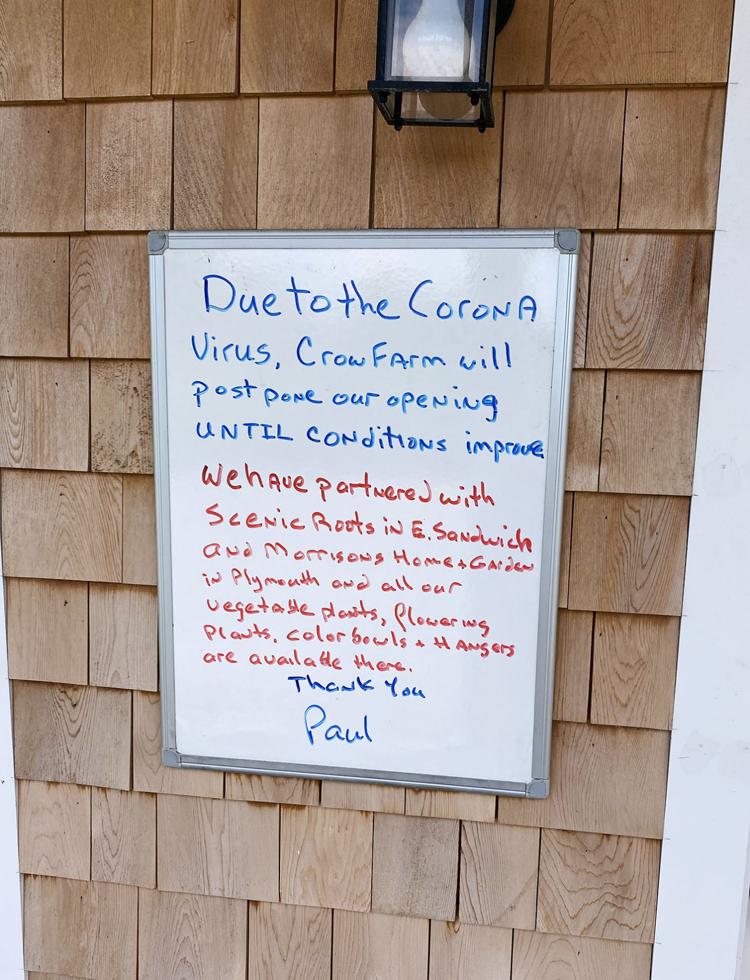 Due to the Corona
Virus, Crow Farm will
postpone our opening
UNTIL CONditiONS improve
We have partnered with
Scenic Roots in E. Sandwich
and Morrisons Home + Garden
in Plymouth and all our
vegetable plants, flowering
plants, color bowls + HANgers
are available there.
Thank You
Paul